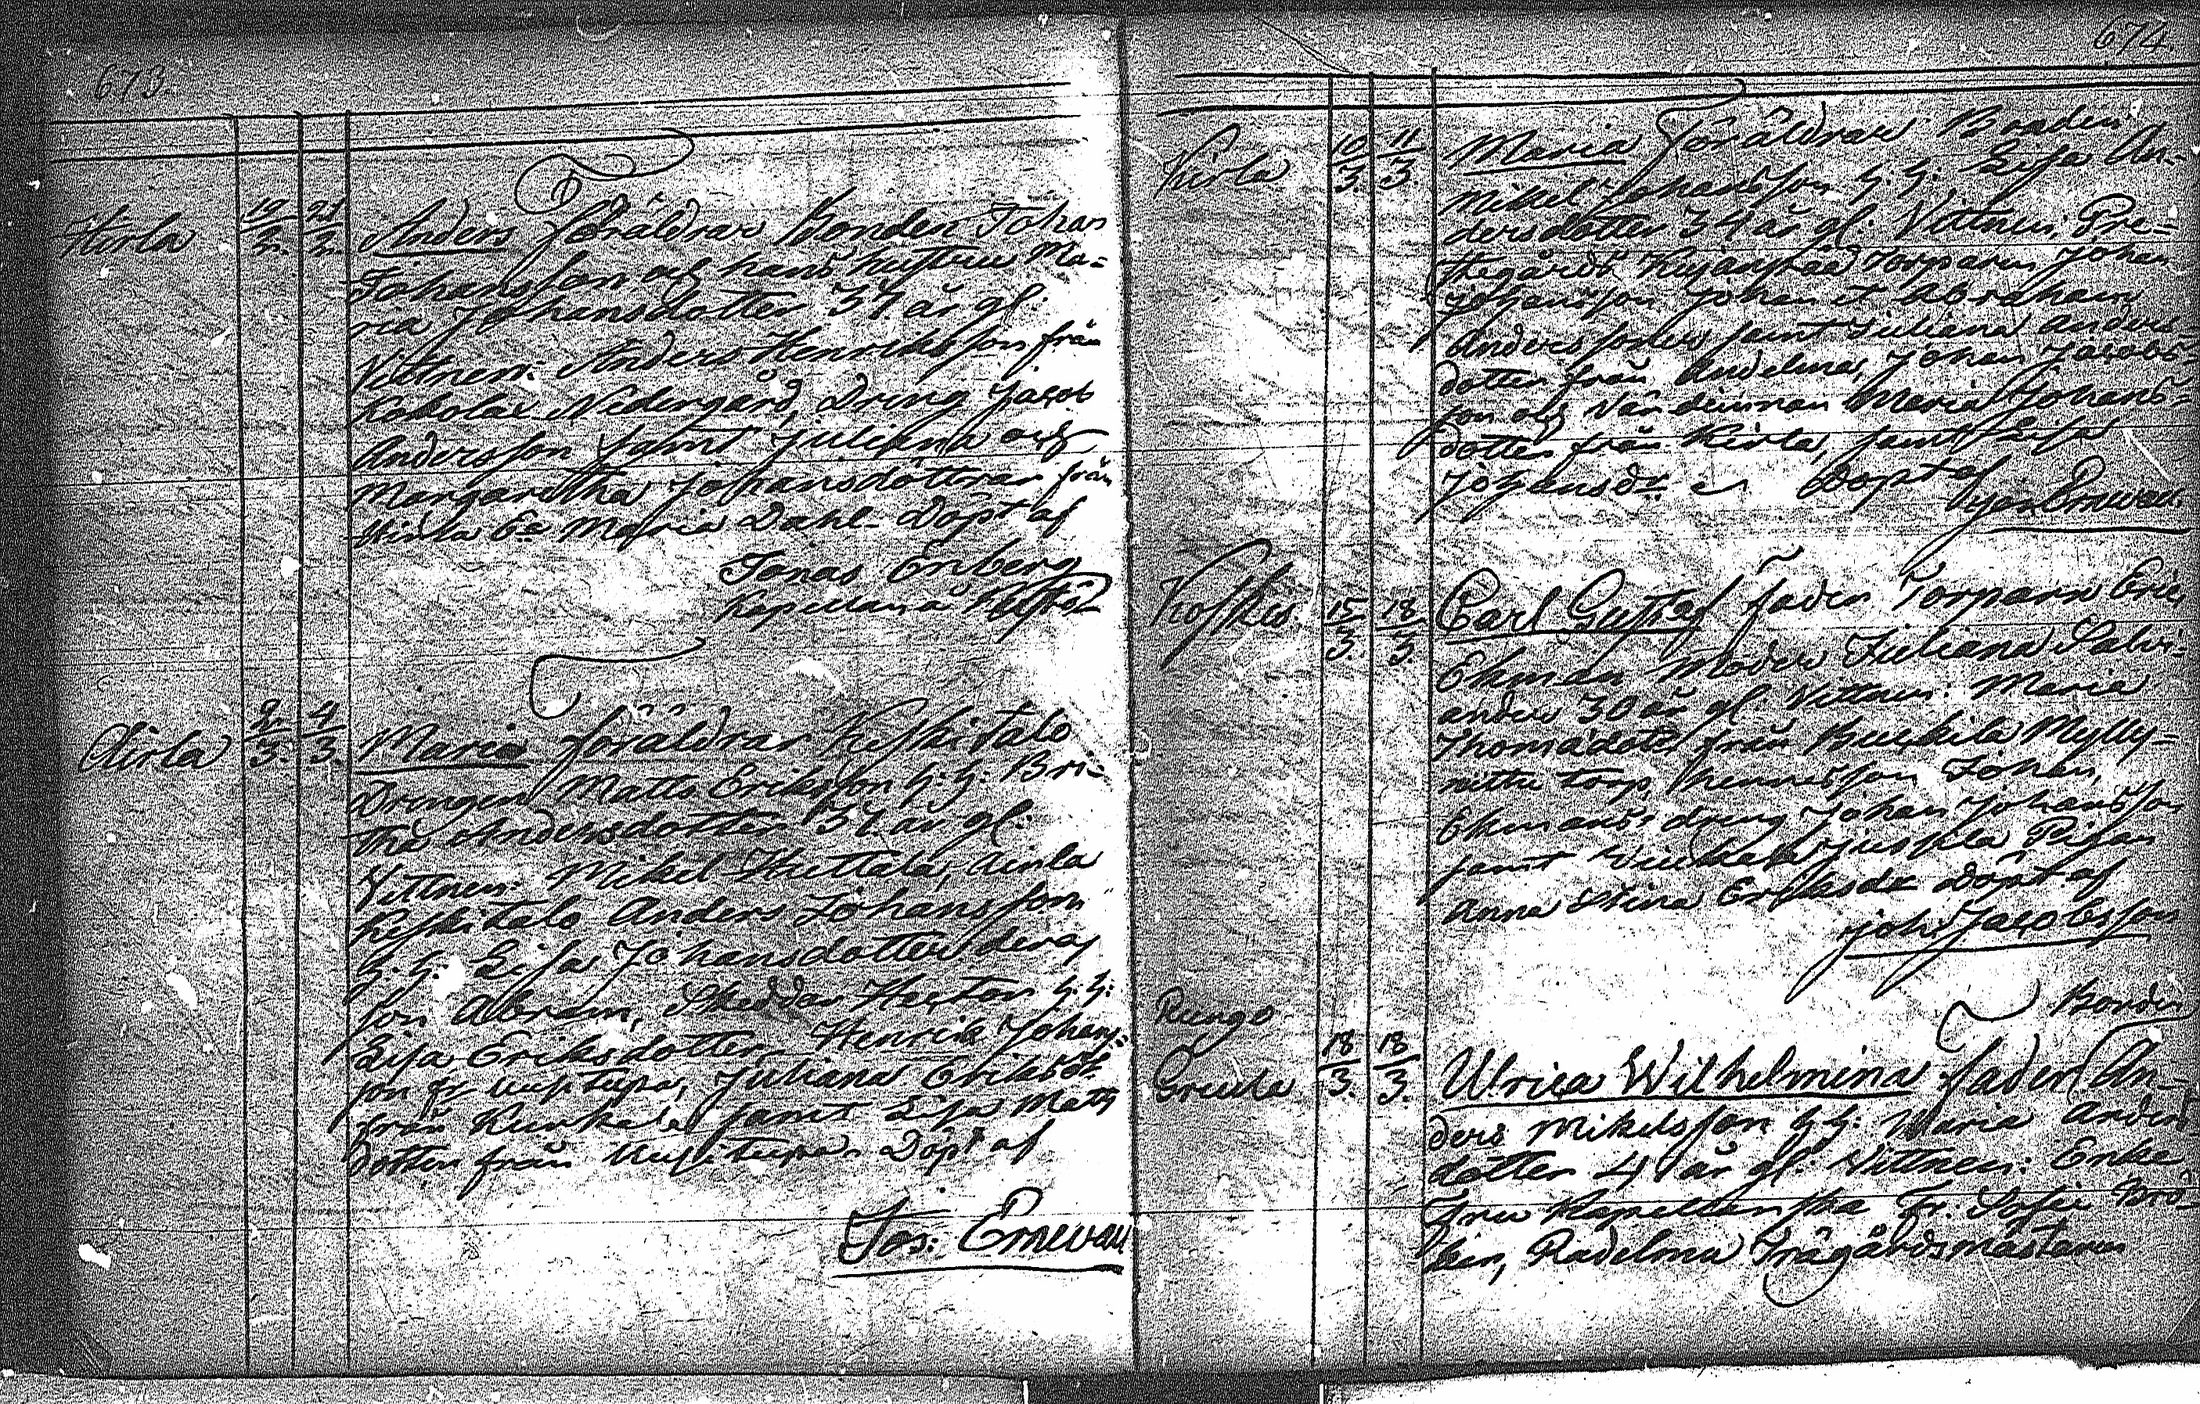 673
Hirla 19/2. 21/2. Anders Föräldrar Bonden Johan
Johansson och hans hustru Ma-
ria Johansdotter 37 år gl.
Vittnen: Anders Henriksson från
Kokola Nedergård, Dräng Jacob
Andersson samt Juliana och
Margaretha Johansdöttrar från
Hirla Maria Dahl. Döpt af
Jonas Enberg
Kapellan i
Airla 2/3. 4/3. Maria föräldrar Keskitalo
Drängen Matts Eriksson h. h: Bri-
tha Andersdotter 37 år gl.
Vittnen: Mikel Huttala, Airla
Keskitalo Anders Johansson
h. h: Lisa Johansdotter deras
son Abram, h. h:
Lisa Eriksdotter, Henrik Johans-
son fr Uusitupa, Juliana Eriksdt
från samt Lisa Matts
dotter från Uusitupa. Döpt af
Jos: Emewau
674.
Kirla 10/3. 11/3. Maria Föräldrar Bonden
Mikel Johansson h. h: Lisa An-
dersdotter 34 år gl. Vittnen: Pre-
stegårds Torparen Johan
Johansson Johan et Abraham
Anderssöner samt Juliana Anders
dotter från Audelma, Johan Jacobs-
son och Maria Johans-
dotter från Kirla, samt Lisa
Johansdr. Döpt af
Jos Emewau.
Koskis. 15/3. 18/3. Carl Gustaf fader Torparn Eric
Ekman Moder Juliana Salvi-
ander 30 år gl. Vittnen: Maria
Thomasdotr från Mylly-
nittu torp, hennes son Johan,
Ekmans dräng Johan Johansson
samt Pigan
Anna Stina Eriksdr. Döpt af
Joh: Jacobsson
Rungo Bonden
Greula 18/3. 18/3. Ulrica Wilhelmina fader An-
ders Mikelsson h h: Maria Anders-
dotter 41 år gl. Vittnen: Enke
Fru Kapellanska Fr. Sofie Bro-
len, Radelma Trägårdsmästaren